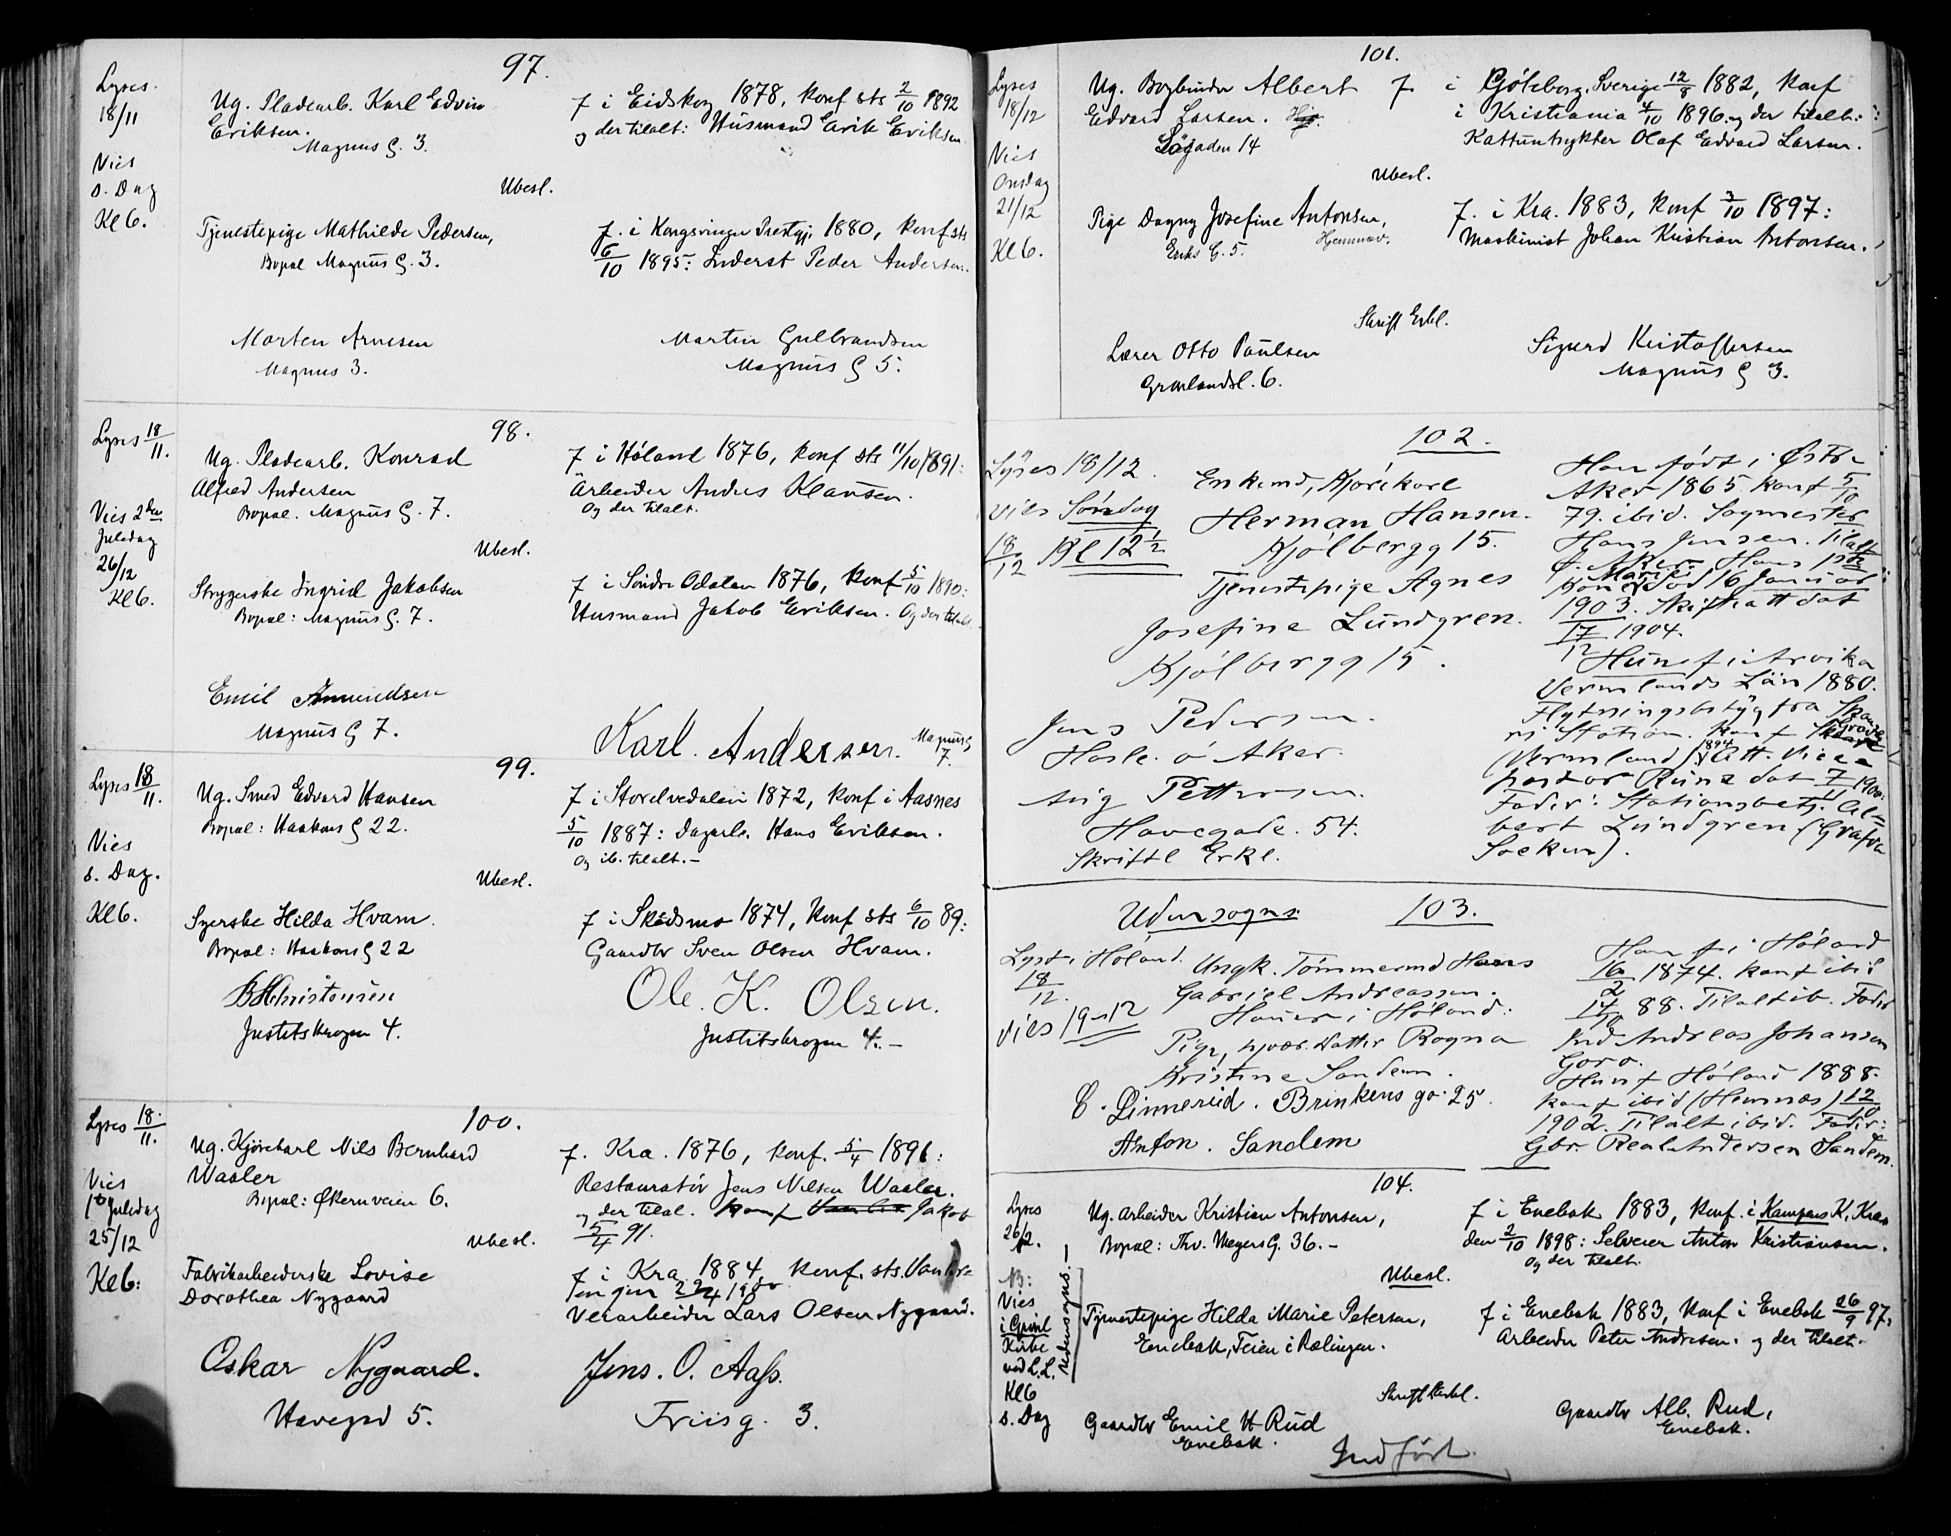 97.
Lyses.
18/11
Vies
s. Dag
Kl 6.
Ug. Pladearb. Karl Edvin
Eriksen.
Magnus G. 3.
f i Eidskog 1878, konf sts 2/10 1892
og der tilalt: Husmand Erik Eriksen
Ubesl.
Tjenestepige Mathilde Pedersen,
Bopæl Magnus G. 3.
f. i Kongsvinger Prestgj. 1880, konf sts
6/10 1895: Inderst Peder Andersen.
Morten Arnesen
Magnus 3.
Martin Gulbrandsen
Magnus G 5.
98.
Lyses 18/11.
Vies 2den
Juledag
26/12
Kl 6.
Ug. Pladearb. Konrad
Alfred Andersen
Bopæl. Magnus G. 7.
f i Høland 1876, konf sts 11/10 1891:
Arbeider Anders Klausen.
Og der tilalt.
Ubesl.
Strygerske Ingrid Jakobsen
Bopæl: Magnus G. 7.
f i Søndre Odalen 1876, konf 5/10 1890:
Husmand Jakob Eriksen. Og der tilalt
Emil Amundsen
Magnus G 7.
Karl. Andersen. Magnus G
7.
99.
Lyses 18/11.
Vies
s. Dag.
Kl 6.
Ug. Smed Edvard Hansen
Bopæl: Haakons G 22.
f i Storelvedalen 1872, konf i Aasnes
5/10 1887: Dagarb. Hans Eriksen.
Og ib. tilalt.-
Ubesl.
Syerske Hilda Hvam.
Bopæl: Haakons G 22
f i Skedsmo 1874, konf sts 6/10 89:
Gaardbr Sven Olsen Hvam.
B Christensen
Justitskrogen 4.
Ole. K. Olsen.
Justitskrogen 4.-
100.
Lyses 18/11.
Vies
1ste Juledag
25/12
Kl 6:
Ug. Kjørekarl Nils Bernhard
Waaler
Bopæl: Økernveien 6.
f. Kra. 1876, konf. 5/4 1891:
Restauratør Jens Nilsen Waaler.
og der tilal. konf Jakob
5/4 91.
Ubesl.
Fabrikarbeiderske Lovise
Dorothea Nygaard
f i Kra 1884, konf. sts.
1900
Verarbeider Lars Olsen Nygaard.
Oskar Nygaard.
Havegad 5.
Jens. O. Aass.
Friisg. 3.
101.
Lyses
18/12
Vies
Onsdag
21/12
Kl 6.
Ug. Bogbinder Albert
Edvard Larsen.
14
f i Gøteborg, Sverige 12/8 1882, konf
i Kristiania 4/10 1896: og der tilalt:
Kattuntrykker Olaf Edvard Larsen.
Ubesl.
Pige Dagny Josefine Antonsen,
Hjemmev.
Eriks G. 5.
f. i Kra. 1883, konf 3/10 1897:
Maskinist Johan Kristian Antonsen.
Skriftl Erkl.
Lærer Otto Paulsen
Grønlandsl. 6.
Sigurd Kristoffersen
Magnus G 3.
102.
Lyses 18/12.
vies Søndag
18/12 Kl 12 1/2
Enkemd, Kjørekarl
Herman Hansen.
Kjølbergg 15.
Tjenestepige Agnes
Josefine Lundgren.
Kjølbergg 15.
Jens Pedersen.
Hasle. ø Aker.
Aug Pettersen.
Havegade. 54.
Skriftl Erkl.
Han født i Østre
Aker 1865 konf 5/10
79. ibid. Sagmester
Hans Jensen. Tilalt
Ø. Aker. Hans
Kone Marie død 16 Januar
1903. Skifteatt dat
17/12 1904.
Hun f i Arvika
Vermlands Län 1880.
Flytningsbetyg fra
Station. Konf
(Vermland) 1894 Att. Vice
pastor Rune dat 7/11 1900:
Fader: Stationsbetj. Al=
bert Lundgren (Grafva
Socken).
103.
Udensogns
Lyst i Høland.
18/12.
Vies 19-12
Ungk. Tømmermd Hans
Gabriel Andreassen.
i Høland:
Pige, hjvær. Datter Ragna
Kristine Sandem.
C. Linnerud. Brinkens ga. 25.
Anton. Sandem
Han f i Høland
16/2 1874. konf ibid
14/10 88. Tilalt ib. Fader
Ind Andreas Johansen
Hun f Høland 1888.
konf ibid (Hemnæs) 12/10
1902. Tilalt ibid. Fader:
Gbr. Real Andersen Sandem.
104.
Lyses
26/12.
NB:
Vies
i Grønl
Kirke
ved L.L.
Kl 6
s. Dag
Udensogns!
Ug. Arbeider Kristian Antonsen,
Bopæl: Thv. Meyers G. 36.-
f i Enebak 1883, konf. i Kampens K, Kra
den 2/10 1898: Selveier Anton Kristiansen.
Og der tilalt.
Ubesl.
Tjenestepige Hilda Marie Petersen,
Enebak, Feien i Rælingen.
f i Enebak 1883, konf i Enebak 26/9 97.
Arbeider Peter Andresen. og der tilalt.
Skriftl Erkl.
Gaardbr Emil H Rud
Enebak.
Gaardbr Alb. Rud,
Enebak.
Indført.